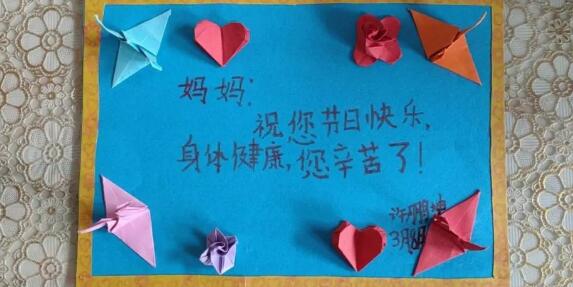 妈妈：
祝您节日快乐，
身体健康，您辛苦了！
许鹏坤
3月8日